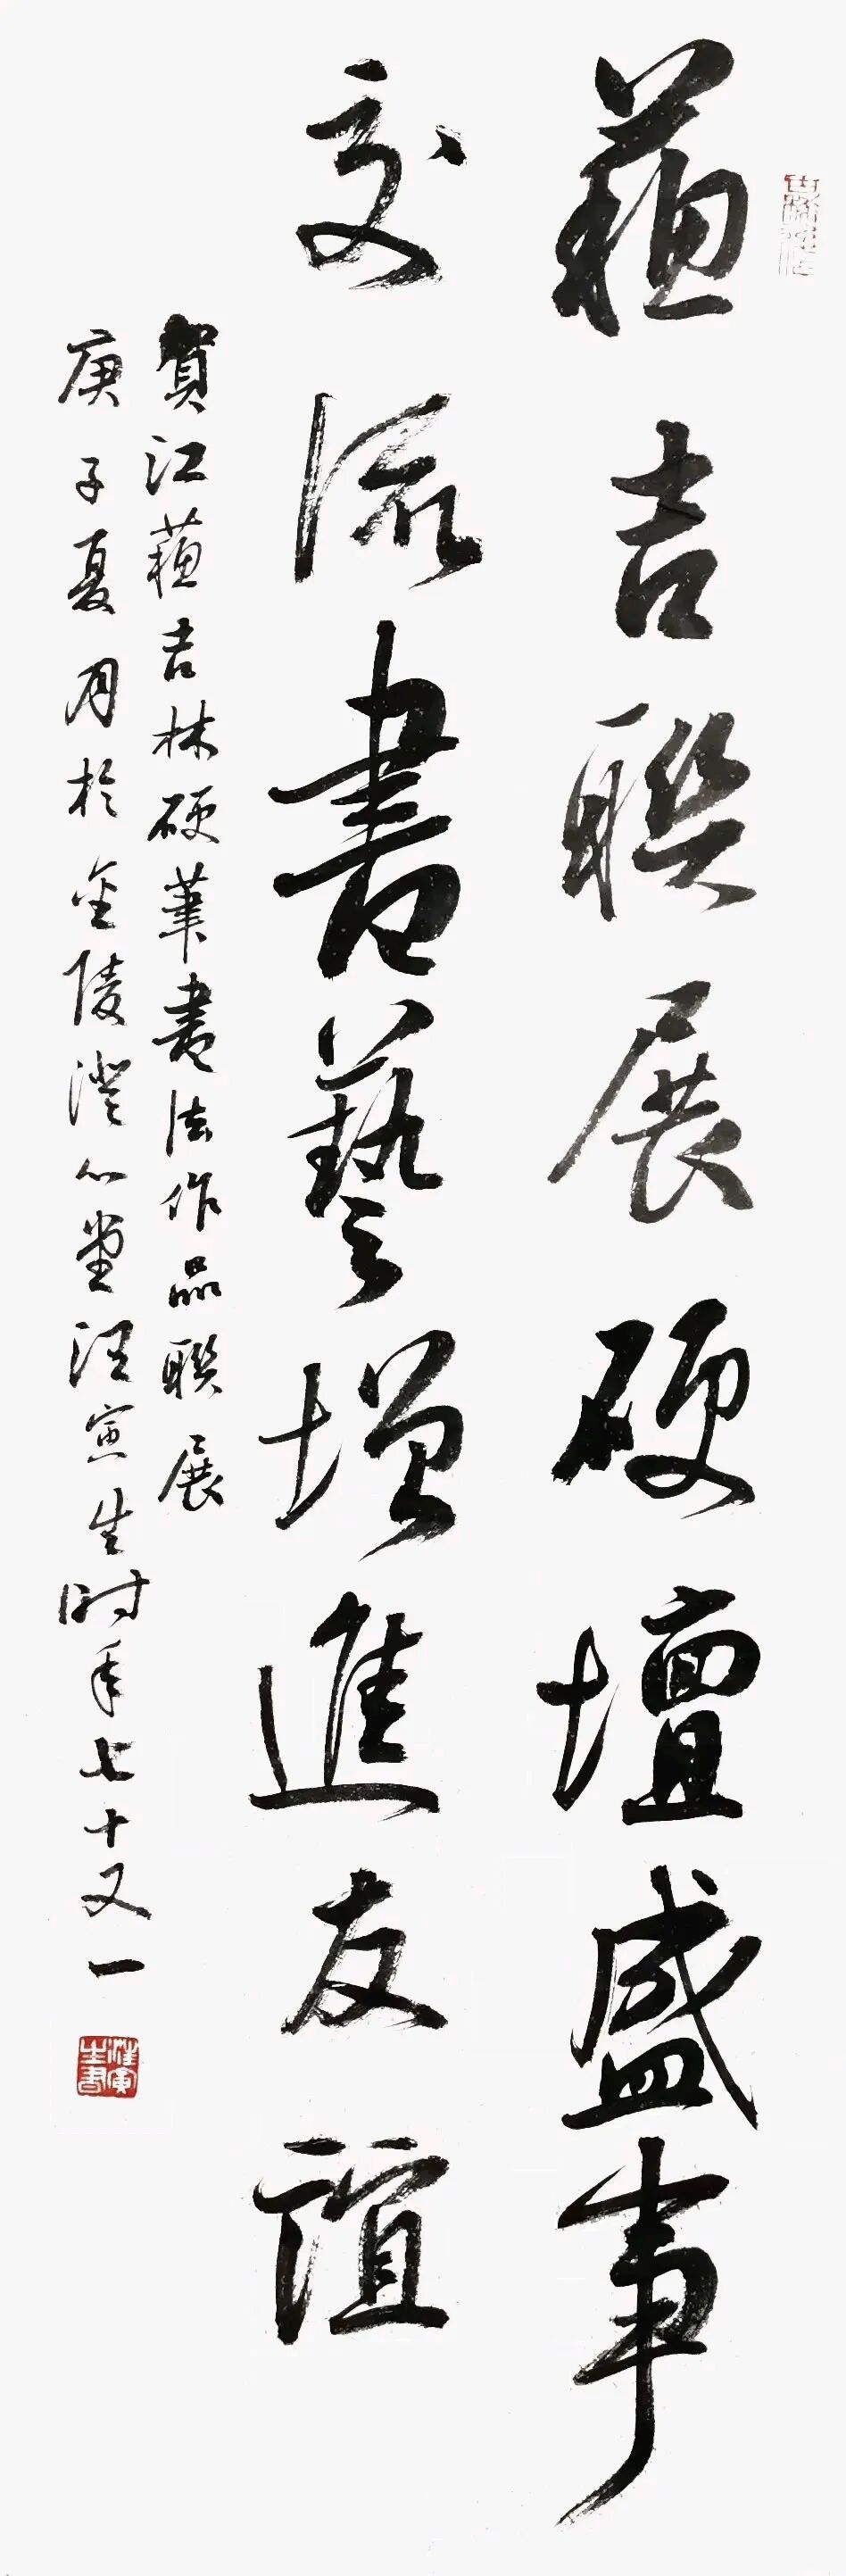 蘓吉聯展硬壇盛事
交流書藝增進友誼
賀江蘓吉林硬筆書法作品聯展
庚子夏月於金陵澄心堂汪寅生时年七十又一
汪寅生書